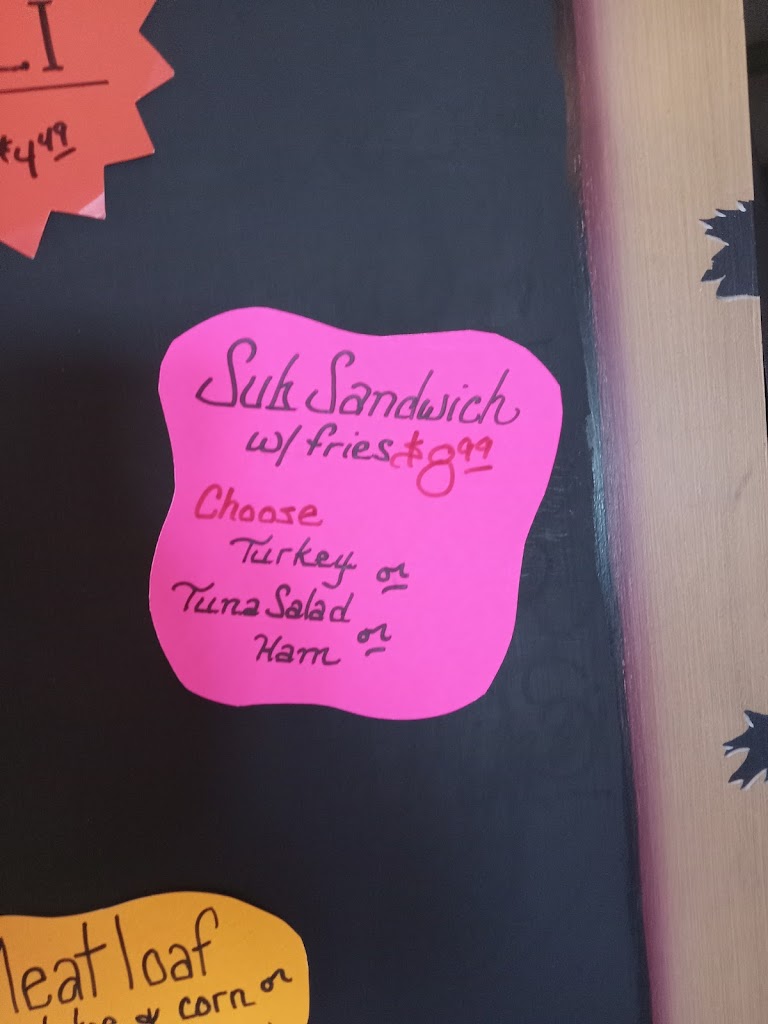 LI
$4.49
Sub Sandwich
w/ fries $8.99
Choose
Turkey or
Tuna Salad or
Ham
Meatloaf
& corn or